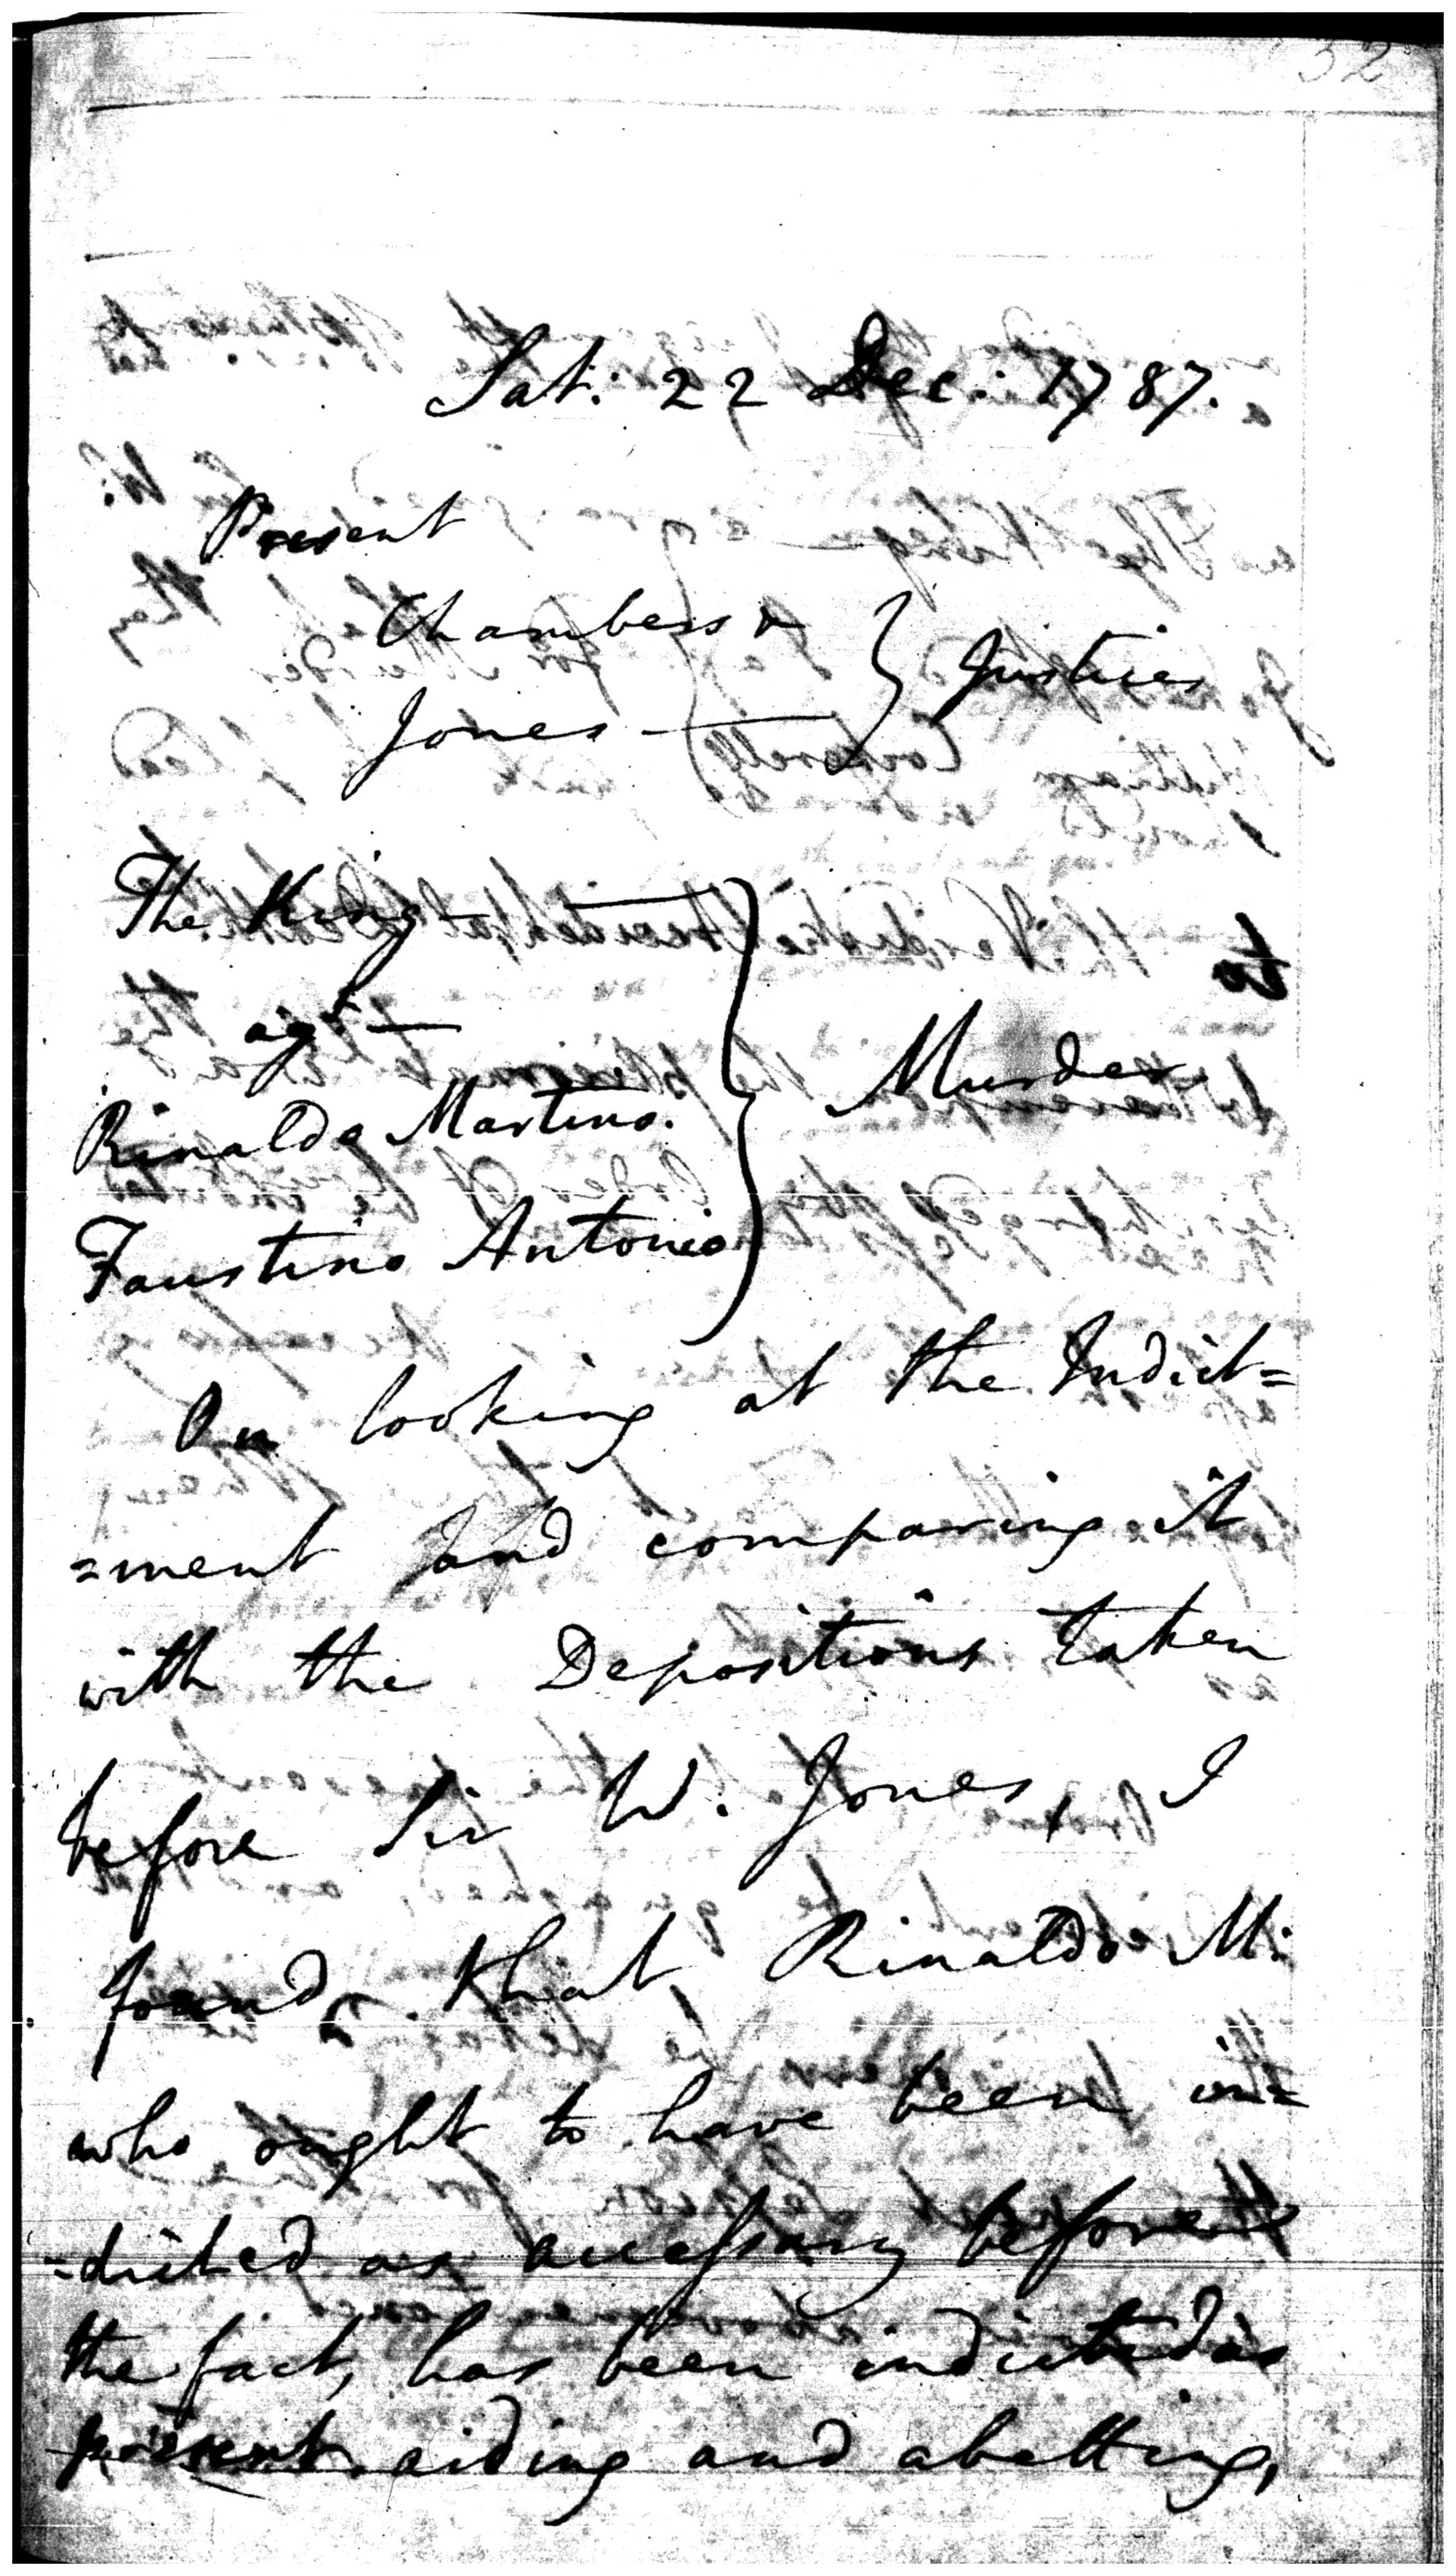 32
Sat: 22 Dec: 1787.
Present
Chambers &
Jones — } Justices
The King —
agt —
Rinaldo Martino. } Murder
Faustino Antonio
On looking at the Indict=
=ment and comparing it
with the Depositions taken
before Sir W. Jones, I
found that Rinaldo M:
who ought to have been in=
=dicted as accessary before
the fact, has been indicted as
present aiding and abetting,